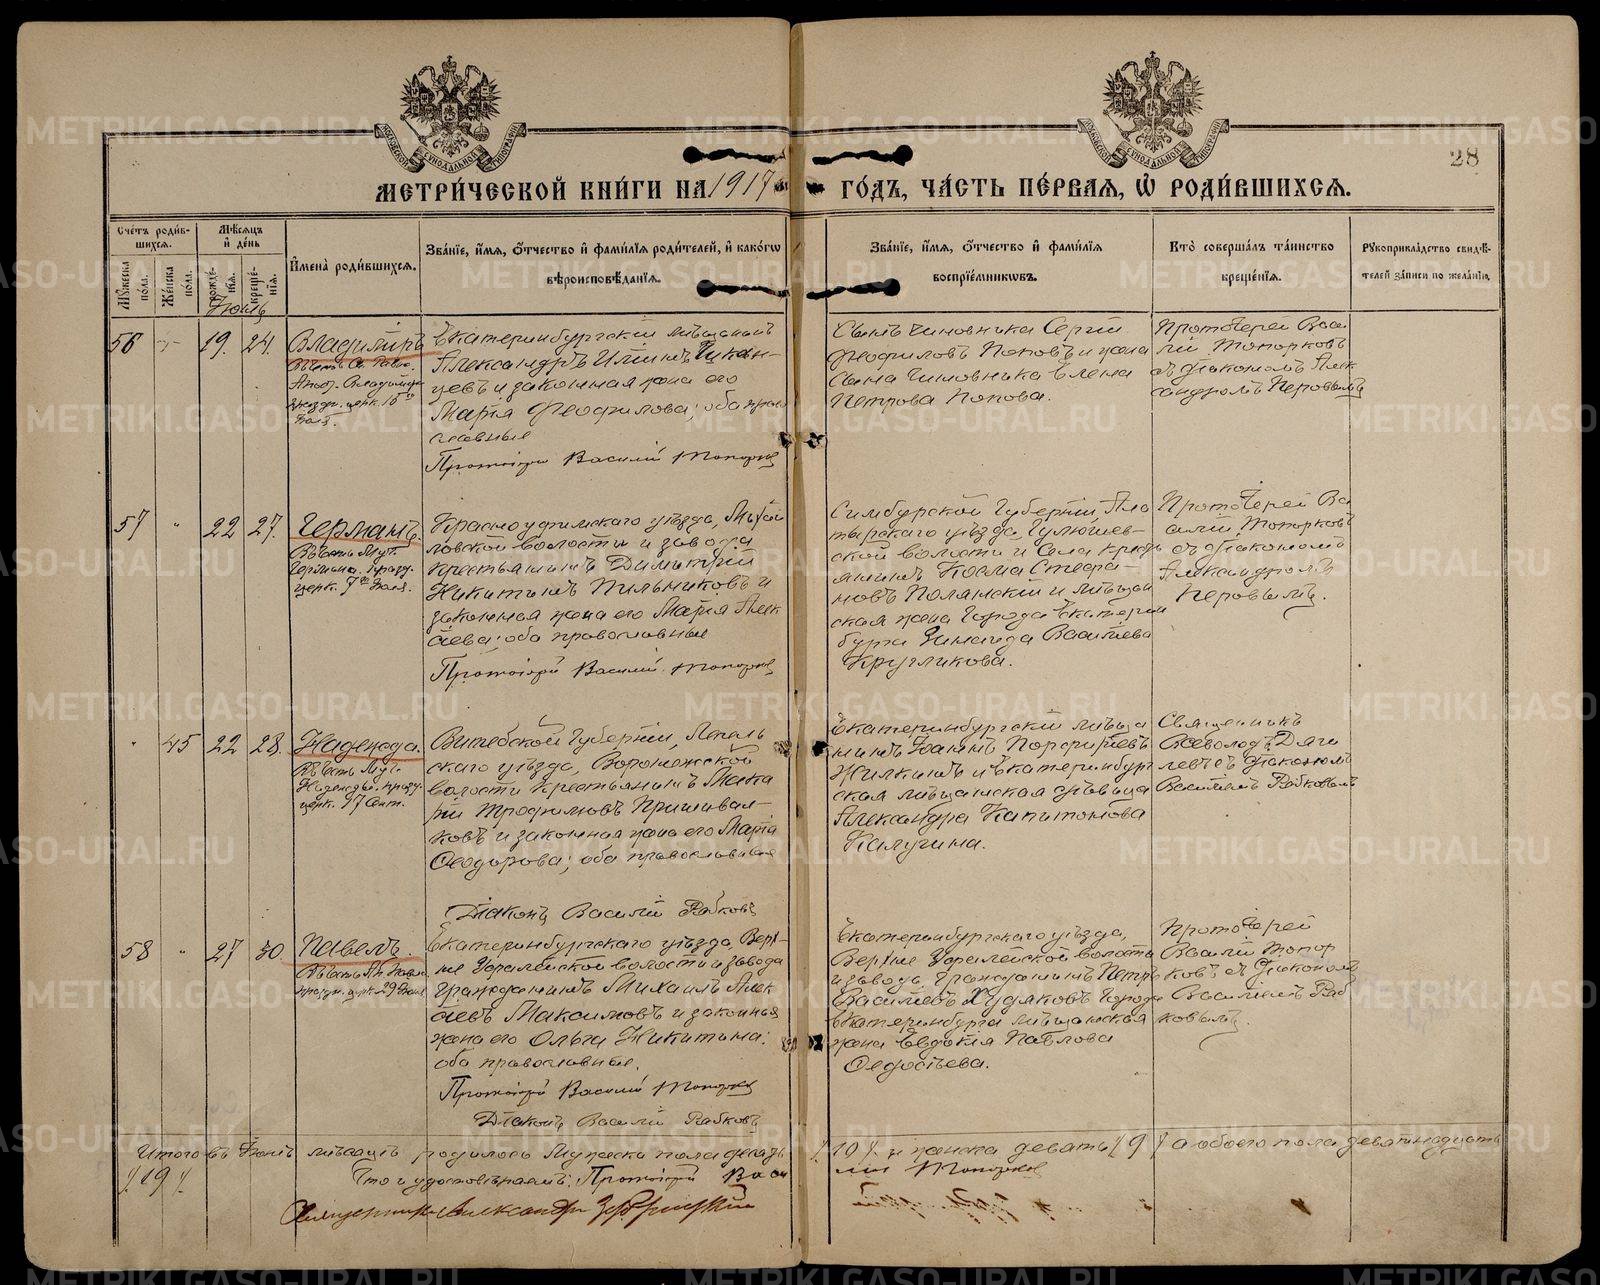 28
МЕТРИ́ЧЕСКОЙ КНИ́ГИ НА 1917 ГО́ДЪ, ЧА́СТЬ ПЕ́РВАЯ, Ѡ҆ РОДИ́ВШИХСЯ.
Сче́тъ роди́в-
шихся.
Мꙋ́жеска по́ла.
Же́нска по́ла.
Мѣ́сяцъ и҆ де́нь
рожде́-
нїя.
креще́-
нїя.
И҆мена̀ роди́вшихся.
Зва́нїе, и҆́мя, ѻ҆́тчество и҆ фами́лїя роди́телей, и҆ како́гѡ
вѣроисповѣ́данїя.
Зва́нїе, и҆́мя, ѻ҆́тчество и҆ фами́лїя
воспрїе́мникѡвъ.
Кто̀ соверша́лъ та́инство
креще́нїя.
Рꙋкоприкла́дство свидѣ́-
телей за́писи по жела́нїю.
Іюль
56
19. 24.
Владиміръ
Екатеринбургскій мѣщанинъ
Александръ
и законная жена его
Марія Феофилова; оба право
славные
Протоіерей Василій Топорков
Сынъ чиновника Сергій
Феофиловъ Поповъ и жена
сына чиновника Елена
Петрова Попова.
Протоіерей Васи
лій Топорковъ
съ діакономъ Алек
сандромъ Перовымъ
57 " 22 27.
Германъ.
Красноуфимскаго уѣзда, Михай
ловской волости и завода
крестьянинъ Димитрій
Никитинъ Пильниковъ и
законная жена его Марія Алек
сѣева; оба православные
Протоіерей Василій Топорков
Симбирской губерніи, Ала
тырскаго уѣзда,
ской волости и села крестья
янинъ Косма Стефа
новъ Полянскій и мѣщан
ская жена города Екатерин
бурга Зинаида Васильева
Кругликова.
Протоіерей Ва
силій Топорковъ
съ діакономъ
Александромъ
Перовымъ.
" 45 22 28.
Надежда.
Витебской губерніи, Лепель
скаго уѣзда, Воронежской
волости крестьянинъ Мака
рій Трофимовъ Пришивал-
ковъ и законная жена его Марія
Ѳеодорова; оба православные
Діаконъ Василій Рабковъ
Екатеринбургскій мѣща
нинъ Іоаннъ Порфирьевъ
Жилкинъ и Екатеринбург
ская мѣщанская дѣвица
Александра Капитонова
Калугина.
Священникъ
Всеволодъ Дяги
левъ съ діакономъ
Василіемъ Рабковымъ
58 " 27 30.
Павелъ.
Екатеринбургскаго уѣзда, Верх-
не Уфалейской волости и завода
гражданинъ Михаилъ Алек
сѣевъ Максимовъ и законная
жена его Ольга Никитина;
оба православные.
Протоіерей Василій Топорков
Діаконъ Василій Рабковъ
Екатеринбургскаго уѣзда,
Верхне Уфалейской волости
и завода гражданинъ Петръ
Васильевъ Худяковъ города
Екатеринбурга мѣщанская
жена Евдокія Павлова
Ѳедосѣева.
Протоіерей
Василій Топор
ковъ съ діакономъ
Василіемъ Раб
ковымъ.
Итого въ Іюлѣ мѣсяцѣ родилось мужеска пола десять /10/, женска девять /9/ а обоего пола девятнадцать
/19/.
Что и удостовѣряемъ: Протоіерей Васи
лій Топорков
Священникъ Александръ
METRIKI.GASO-URAL.RU